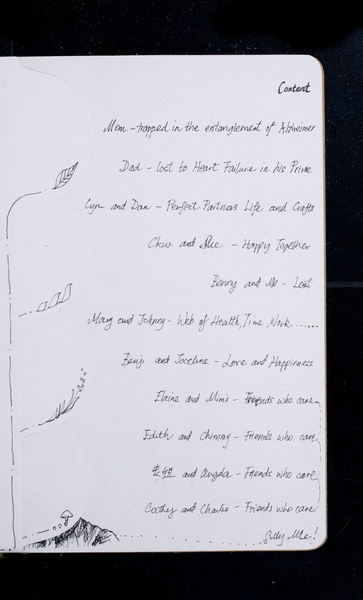 Content
Mom - trapped in the entanglement of Altheimer
Dad - lost to Heart Failure in his Prime
Lyn and Dan - Perfect Partners Life and Crafts
and Sue - Happy Together
Benny and Me - Lost
Mary and Johnny - Web of Health, Time, Work......
Benji and Joceline - Love and Happinness
Elaine and Mimi - Friends who care
Edith and Chinmay - Friends who care
and Angela - Friends who care
Cathy and Charlie - Friends who care
Silly Me!